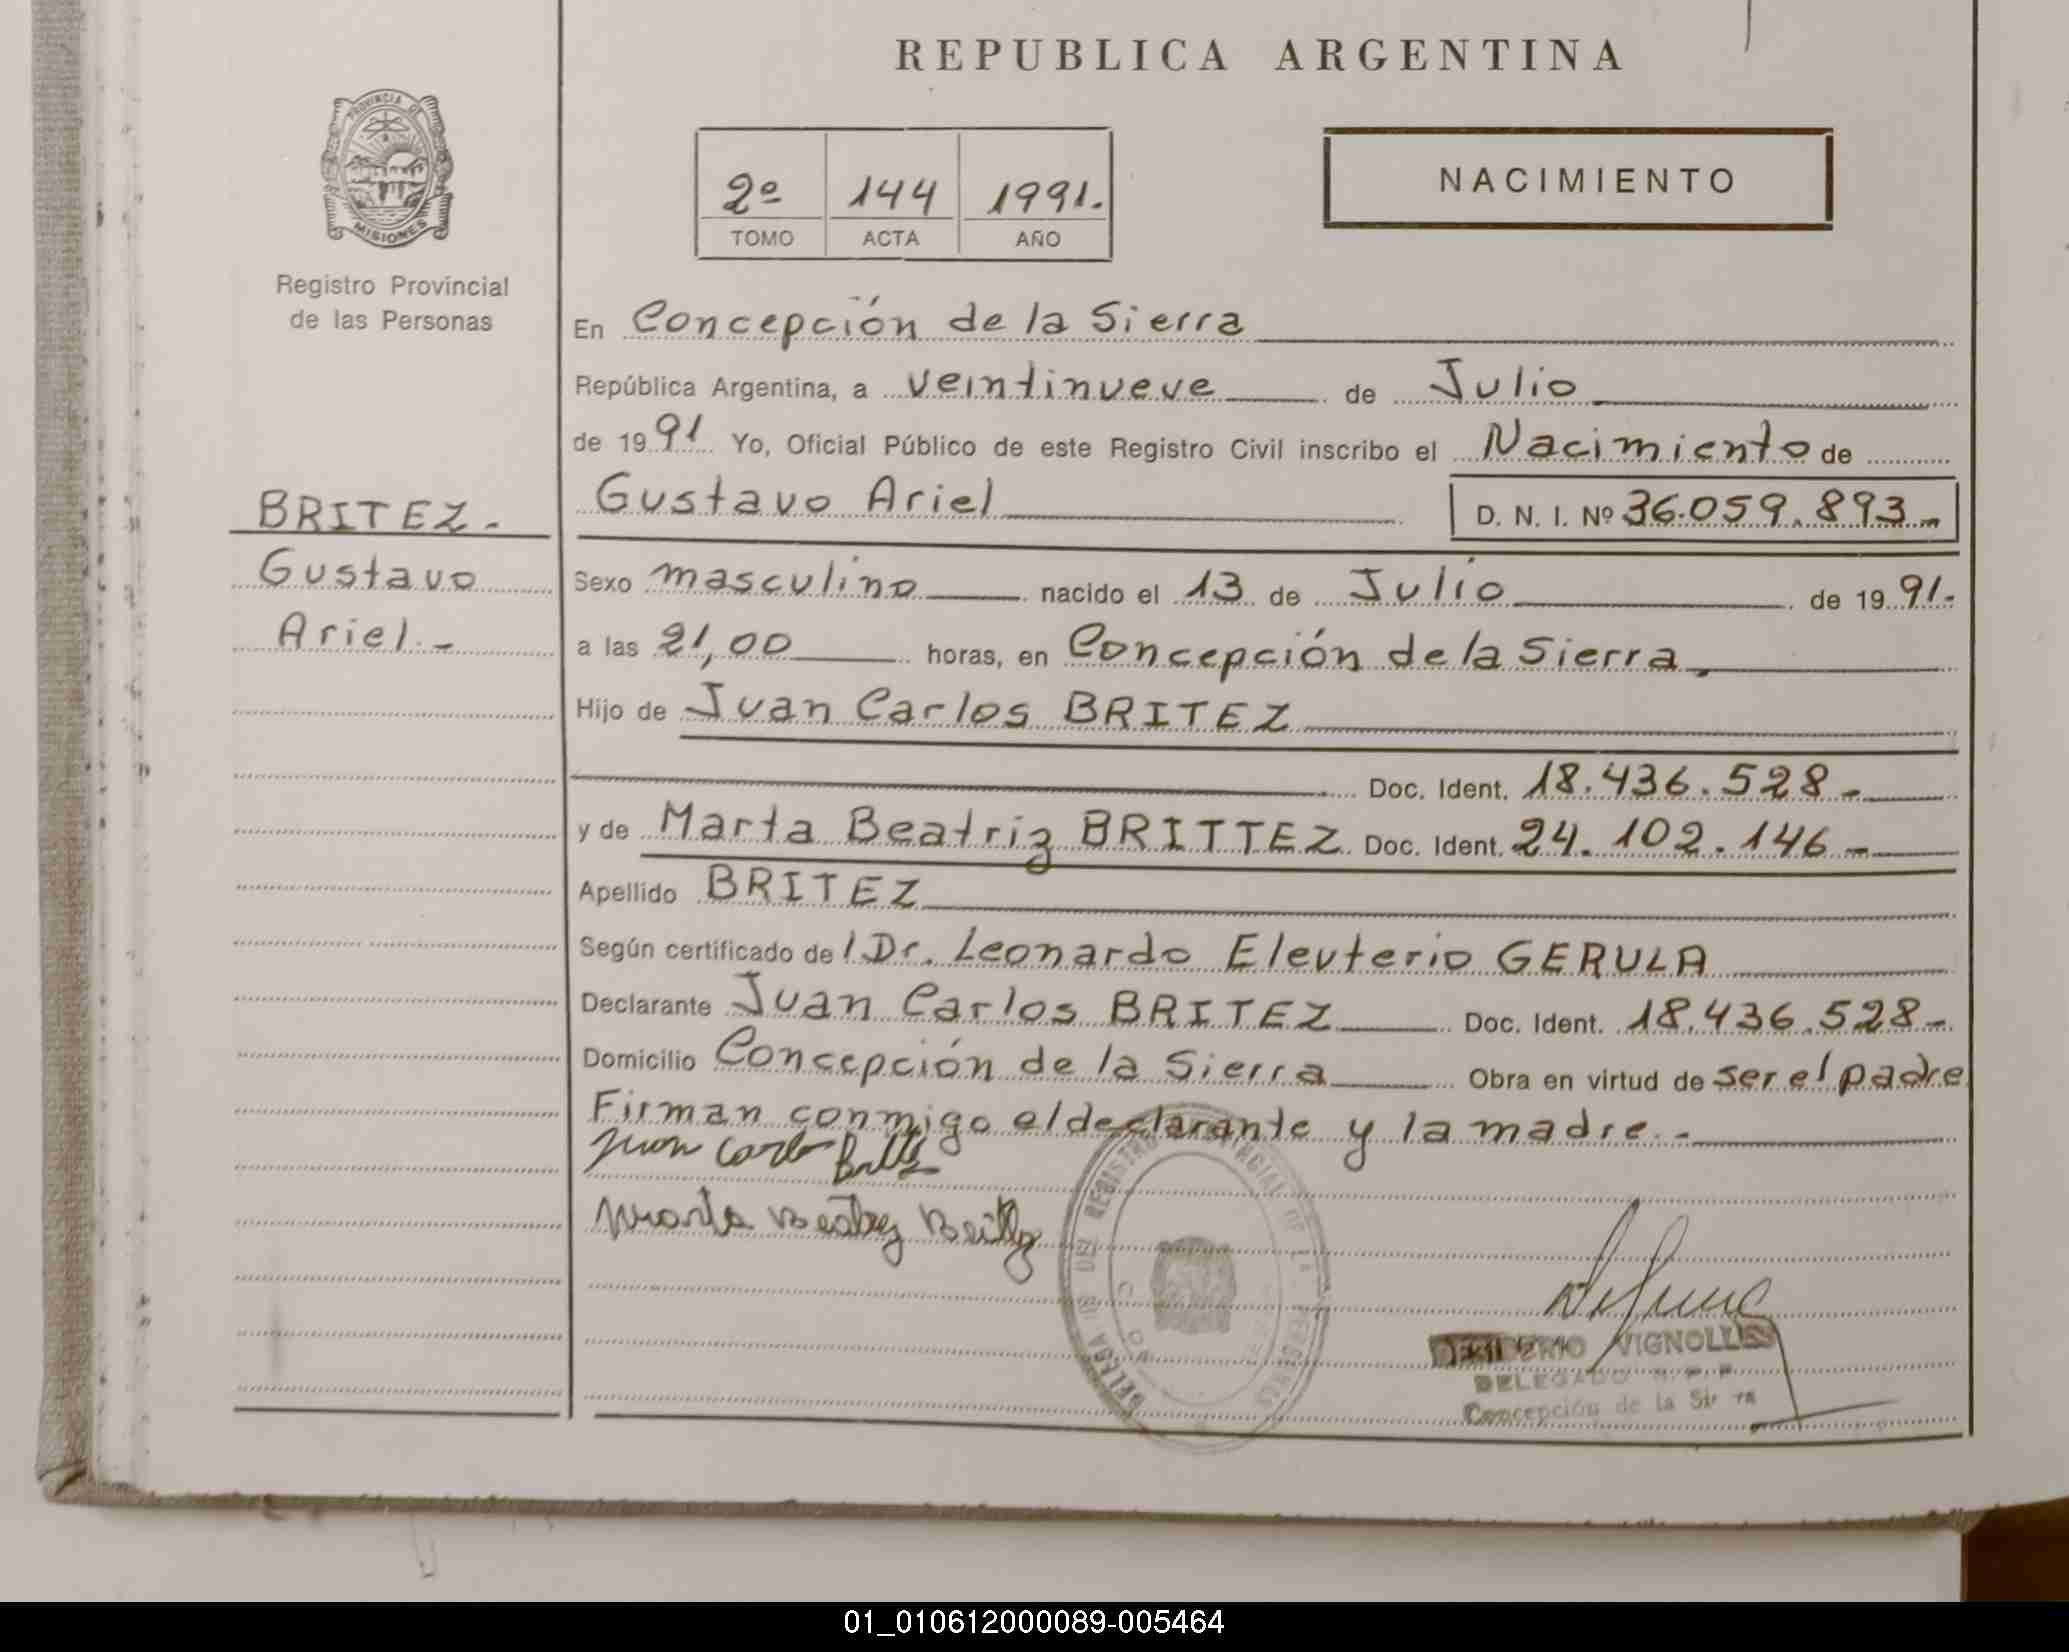 REPUBLICA ARGENTINA
PROVINCIA DE
MISIONES
Registro Provincial
de las Personas
2º 144 1991.
TOMO ACTA AÑO
NACIMIENTO
BRITEZ.
Gustavo
Ariel.-
En Concepción de la Sierra
República Argentina, a veintinueve de Julio
de 1991 Yo, Oficial Público de este Registro Civil inscribo el Nacimiento de
Gustavo Ariel D. N. I. Nº 36.059.893-
Sexo masculino nacido el 13 de Julio de 1991.
a las 21,00 horas, en Concepción de la Sierra.
Hijo de Juan Carlos BRITEZ
Doc. Ident. 18.436.528-
y de Marta Beatriz BRITTEZ Doc. Ident. 24.102.146-
Apellido BRITEZ
Según certificado de l Dr. Leonardo Eleuterio GERULA
Declarante Juan Carlos BRITEZ Doc. Ident. 18.436.528-
Domicilio Concepción de la Sierra Obra en virtud de ser el padre
Firman conmigo el declarante y la madre.-
Juan Carlos
Marta
DEL REGISTRO
VIGNOLLES
DELEGADO R.P.P.
Concepción de la
01_010612000089-005464